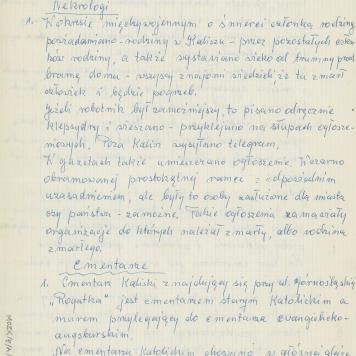 Nekrologi
1. W okresie międzywojennym o śmierci członka rodziny
powiadamiano rodziny w Kaliszu - przez pozostałych człon
ków rodziny, a także wystawiano wieko od trumny przed
bramę domu - wszyscy znajomi wiedzieli, że tu zmarł
człowiek i będzie pogrzeb.
Jeżeli robotnik był zamożniejszy, to pisano odręcznie
klepsydry i wieszano - przyklejano na słupach ogłosze-
niowych. Poza Kalisz wysyłano telegram.
W gazetach także umieszczano ogłoszenie. W czarno
obramowanej prostokątnej ramce z odpowiednim
uzasadnieniem, ale były to osoby zasłużone dla miasta
czy państwa - zamożne. Takie ogłoszenia zamawiały
organizacje do których należał zmarły, albo rodzina
zmarłego.
Cmentarze
1. Cmentarz Kaliski znajdujący się przy ul. Górnośląskiej
"Rogatka" jest cmentarzem starym Katolickim a
murem przylegający do cmentarza ewangelicko-
augsburskim.
Na cmentarzu Katolickim chowano w głównej alei